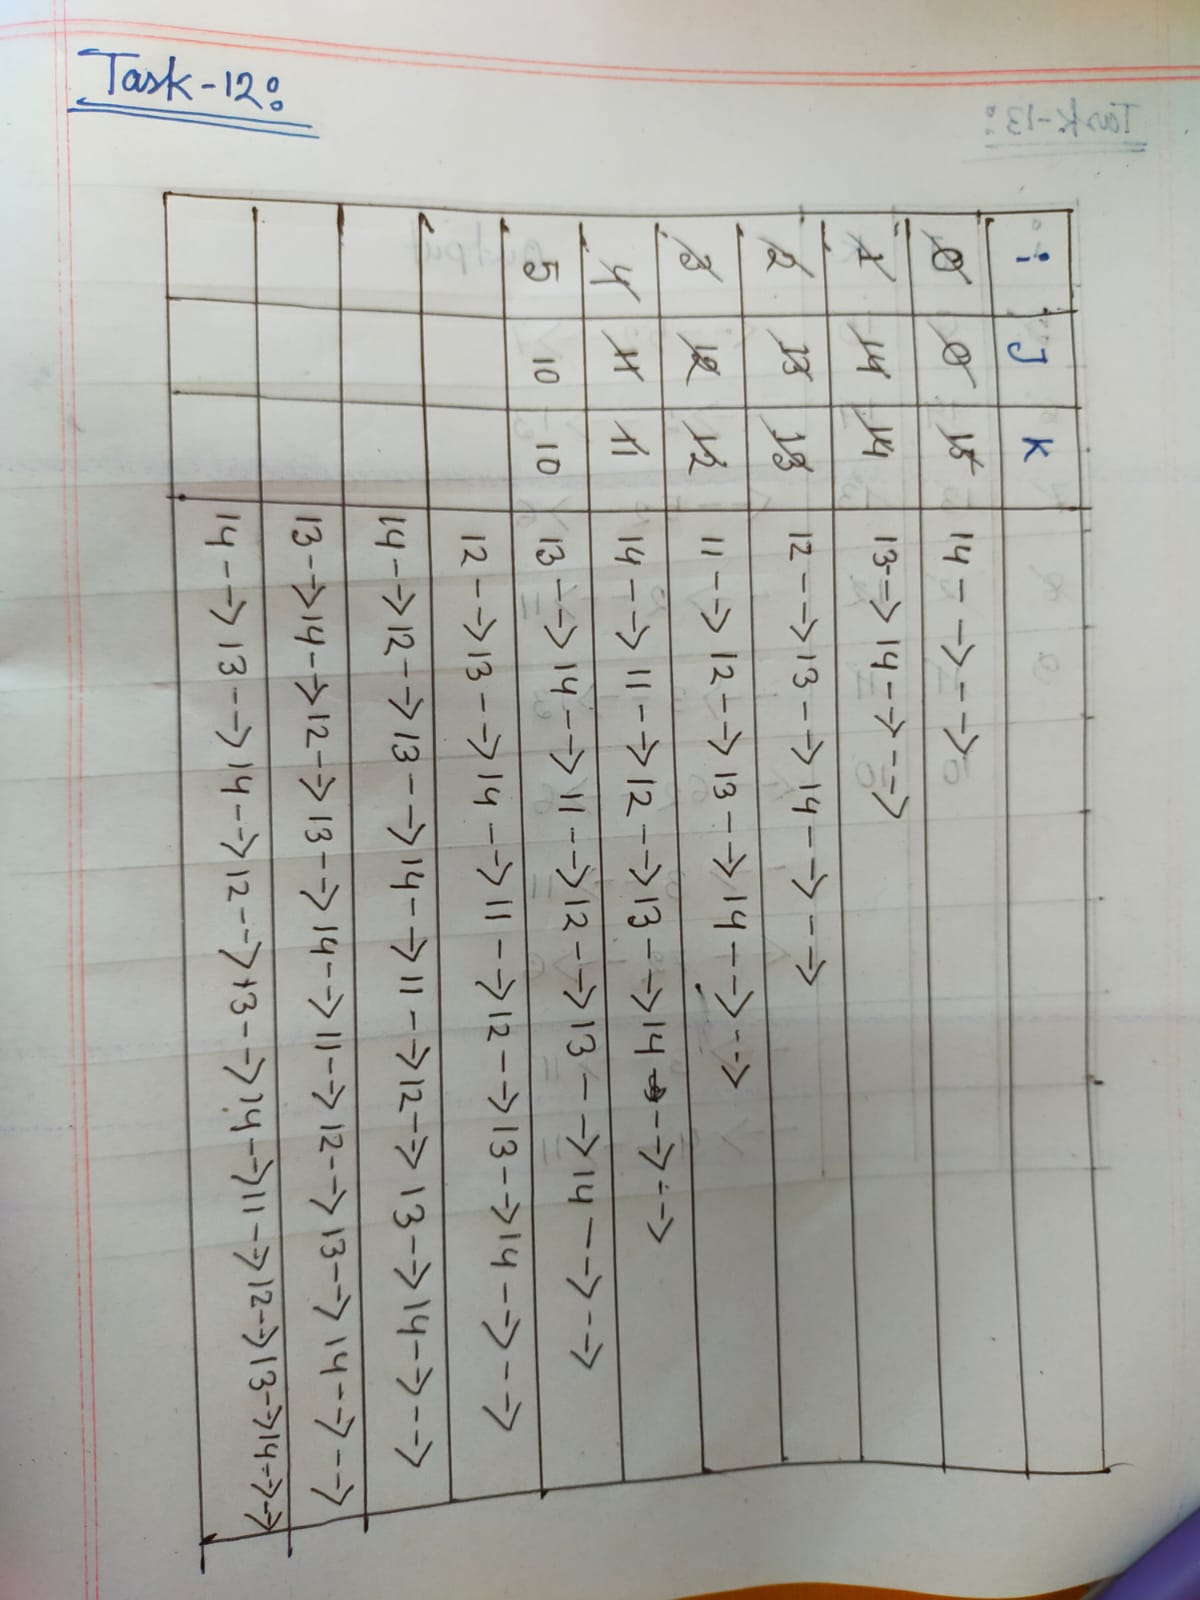 Task-12:
i J K
0 0 15 14-->-->
1 14 14 13-->14-->-->
2 13 13 12-->13-->14-->-->
3 12 12 11-->12-->13-->14-->-->
4 11 11 14-->11-->12-->13-->14-->-->
5 10 10 13-->14-->11-->12-->13-->14-->-->
12-->13-->14-->11-->12-->13-->14-->-->
14-->12-->13-->14-->11-->12-->13-->14-->-->
13-->14-->12-->13-->14-->11-->12-->13-->14-->-->
14-->13-->14-->12-->13-->14-->11-->12-->13-->14-->-->
Task-13: